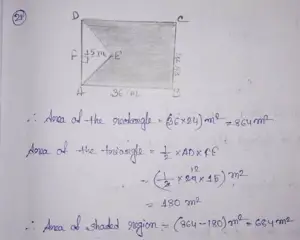 28
D C
F 15 m E
24 m
A 36 m B
∴ Area of the rectangle = (36 × 24) m² = 864 m²
Area of the triangle = 1/2 × AD × FE
= (1/2 × 24 12 × 15) m²
= 180 m²
∴ Area of shaded region = (864 - 180) m² = 684 m²